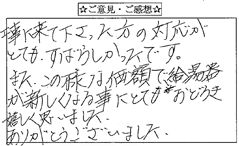 ☆ご意見・ご感想☆
事に来て下さった方の対応が
とても、すばらしかったです。
また、この様な価額で給湯器
が新しくなる事にとてもおどろき
思いました
ありがとうございました。